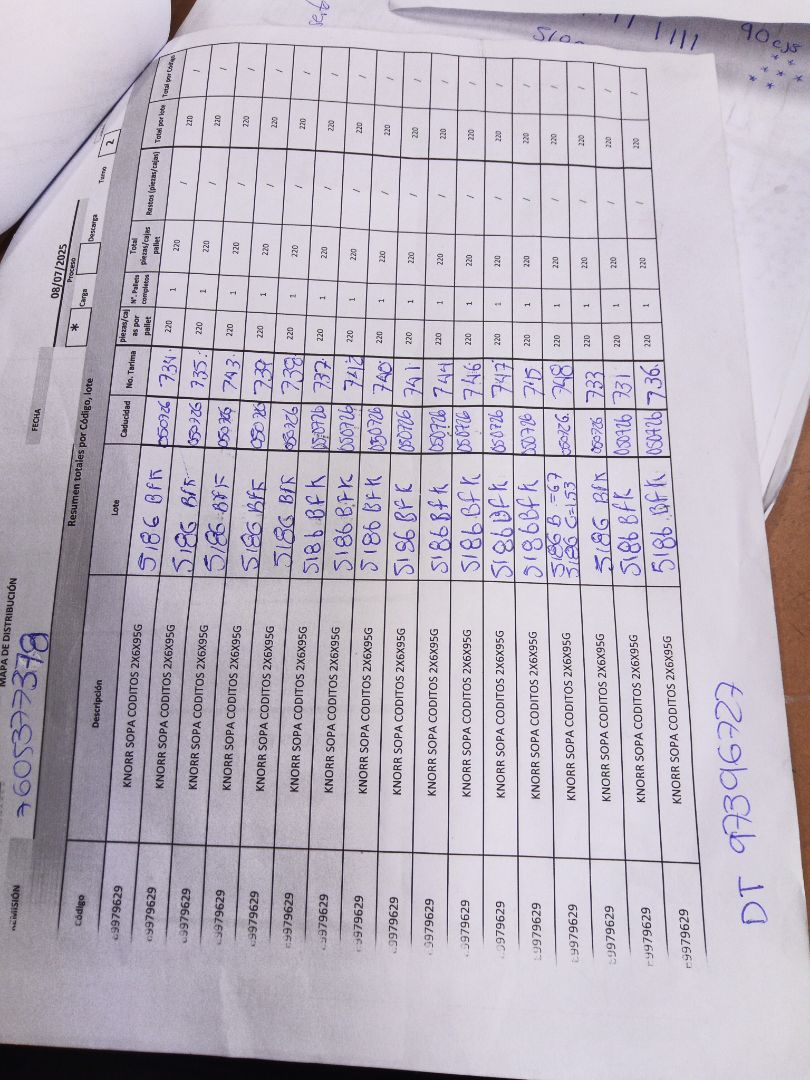 MAPA DE DISTRIBUCIÓN
REMISIÓN 7605377378 FECHA 08/07/2025
Proceso
* Carga Descarga Turno 2
Resumen totales por Código, lote
Código Descripción Lote Caducidad No. Tarima piezas/cajas por pallet N°. Pallets completos Total piezas/cajas pallet Restos (piezas/cajas) Total por lote Total por Código
69979629 KNORR SOPA CODITOS 2X6X95G 5186 BFK 050726 734 220 1 220 / 220 /
69979629 KNORR SOPA CODITOS 2X6X95G 5186 BFK 050726 735 220 1 220 / 220 /
69979629 KNORR SOPA CODITOS 2X6X95G 5186 BFK 050726 743 220 1 220 / 220 /
69979629 KNORR SOPA CODITOS 2X6X95G 5186 BFK 050726 739 220 1 220 / 220 /
69979629 KNORR SOPA CODITOS 2X6X95G 5186 BFK 050726 738 220 1 220 / 220 /
69979629 KNORR SOPA CODITOS 2X6X95G 5186 BFK 050726 737 220 1 220 / 220 /
69979629 KNORR SOPA CODITOS 2X6X95G 5186 BFK 050726 742 220 1 220 / 220 /
69979629 KNORR SOPA CODITOS 2X6X95G 5186 BFK 050726 740 220 1 220 / 220 /
69979629 KNORR SOPA CODITOS 2X6X95G 5186 BFK 050726 741 220 1 220 / 220 /
69979629 KNORR SOPA CODITOS 2X6X95G 5186 BFK 050726 744 220 1 220 / 220 /
69979629 KNORR SOPA CODITOS 2X6X95G 5186 BFK 050726 746 220 1 220 / 220 /
69979629 KNORR SOPA CODITOS 2X6X95G 5186 BFK 050726 747 220 1 220 / 220 /
69979629 KNORR SOPA CODITOS 2X6X95G 5186 BFK 050726 745 220 1 220 / 220 /
69979629 KNORR SOPA CODITOS 2X6X95G 5186 B =67 5186 C=153 050726 748 220 1 220 / 220 /
69979629 KNORR SOPA CODITOS 2X6X95G 5186 BFK 050726 733 220 1 220 / 220 /
69979629 KNORR SOPA CODITOS 2X6X95G 5186 BFK 050726 731 220 1 220 / 220 /
69979629 KNORR SOPA CODITOS 2X6X95G 5186 BFK 050726 736 220 1 220 / 220 /
DT 97396727
90 cjs